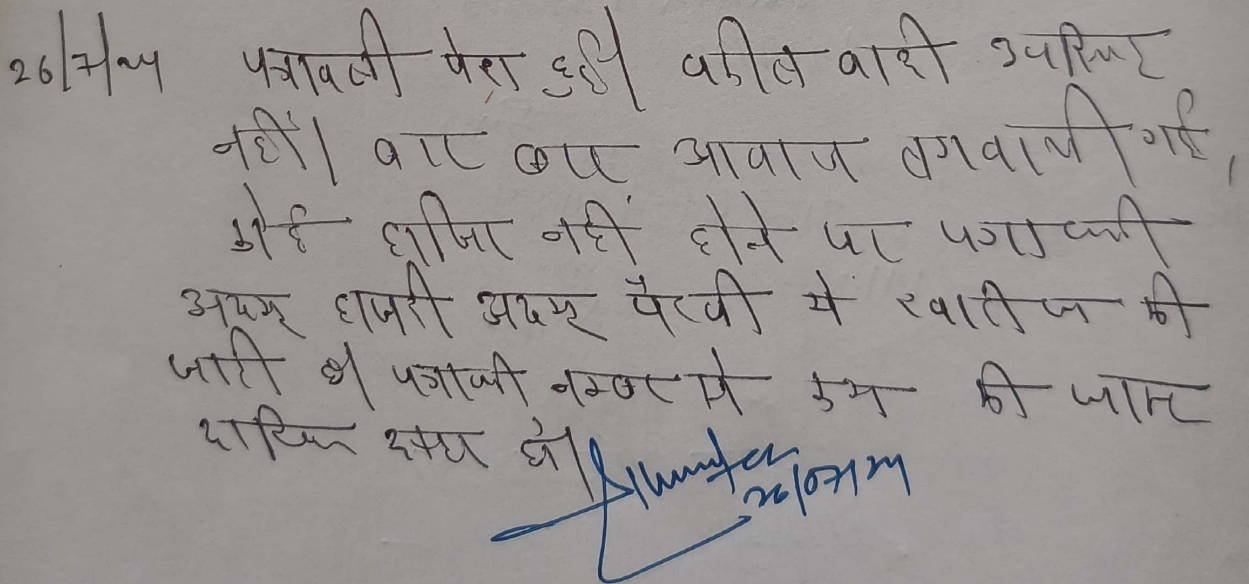 26/7/24 पत्रावली पेश हुई। वकील वादी उपस्थित
नहीं। बार बार आवाज लगवाली गई,
कोई हाजिर नहीं होने पर पत्रावली
अदम हाजरी अदम पैरवी में खारीज की
जाती है। पत्रावली नम्बर से कम की जाकर
दाखिल
26/07/24